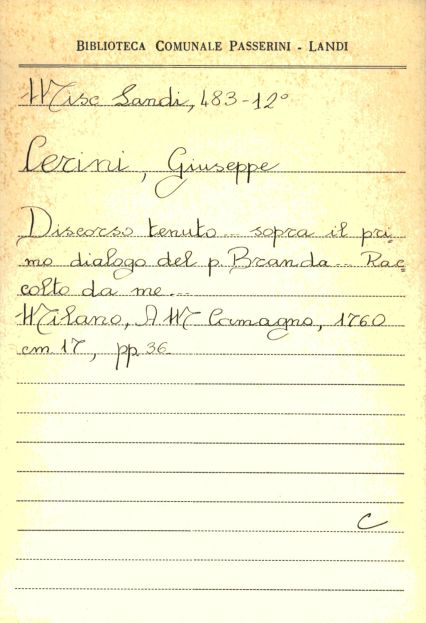 BIBLIOTECA COMUNALE PASSERINI - LANDI
Misc Landi, 483-12°
Cerini, Giuseppe
Discorso tenuto... sopra il pri=
mo dialogo del p. Branda... Rac=
colto da me...
Milano, A M Comagno, 1760
cm 17, pp 36
C